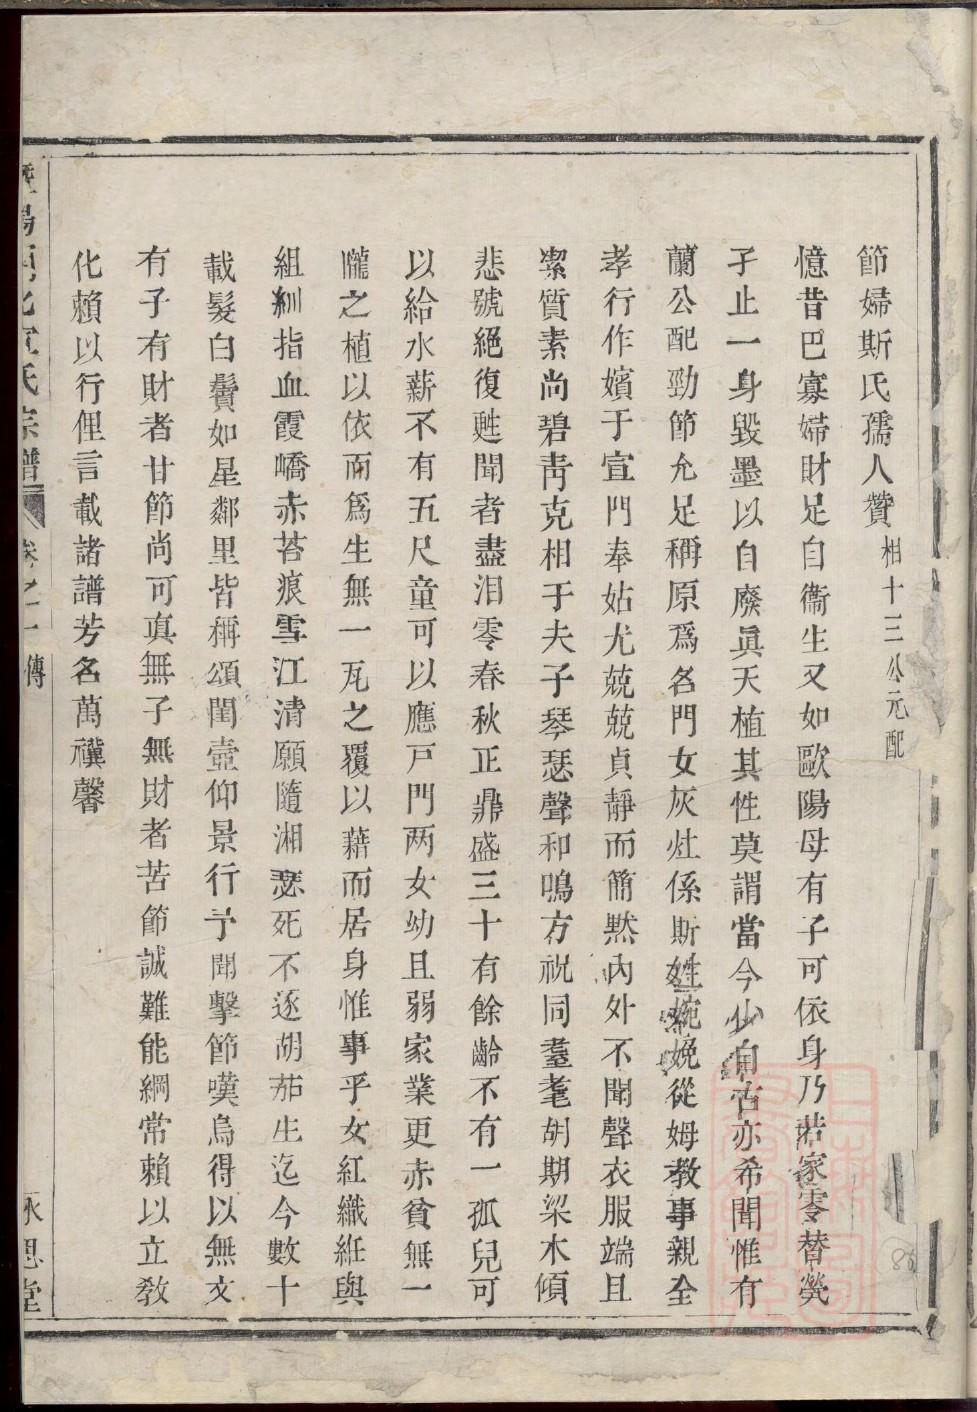 節婦斯氏孺人贊相十三公元配
憶昔巴寡婦財足自衞生又如歐陽母有子可依身乃若家零替煢
孑止一身毀墨以自廢眞天植其性莫謂當今少自古亦希聞惟有
蘭公配勁節允足稱原爲名門女灰灶係斯姓婉娩從姆教事親全
孝行作嬪于宣門奉姑尤兢兢貞靜而簡黙內外不聞聲衣服端且
潔質素尚碧靑克相于夫子琴瑟聲和鳴方祝同耋耄胡期梁木傾
悲號絕復甦聞者盡泪零春秋正鼎盛三十有餘齡不有一孤兒可
以給水薪不有五尺童可以應戸門两女幼且弱家業更赤貧無一
隴之植以依而爲生無一瓦之覆以藉而居身惟事乎女紅織絍與
組紃指血霞嶠赤苔痕雪江清願隨湘瑟死不逐胡茄生迄今數十
載髮白鬢如星鄰里皆稱頌閨壼仰景行予聞擊節嘆烏得以無文
有子有財者甘節尚可真無子無財者苦節誠難能綱常賴以立敎
化賴以行俚言載諸譜芳名萬禩馨
氏宗譜 卷之一 傳 永思堂